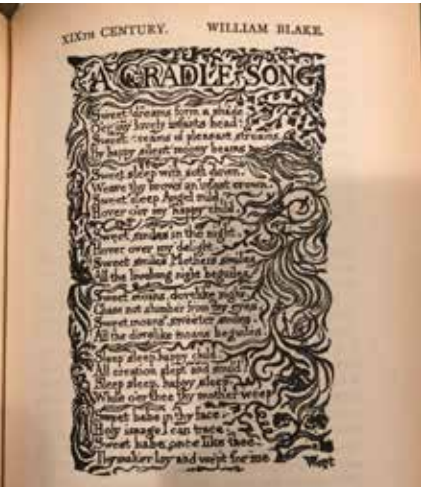 XIXTH CENTURY. WILLIAM BLAKE.
A CRADLE SONG
Sweet dreams form a shade
O'er my lovely infants head.
Sweet dreams of pleasant streams
By happy silent moony beams
Sweet sleep with soft down.
Weave thy brows an infant crown.
Sweet sleep Angel mild,
Hover o'er my happy child.
Sweet smiles in the night,
Hover over my delight.
Sweet smiles Mothers smiles
All the livelong night beguiles.
Sweet moans, dovelike sighs,
Chase not slumber from thy eyes
Sweet moans, sweeter smiles
All the dovelike moans beguiles.
Sleep sleep happy child.
All creation slept and smil'd.
Sleep sleep, happy sleep,
While o'er thee thy mother weep
Sweet babe in thy face,
Holy image I can trace.
Sweet babe once like thee,
Thy maker lay and wept for me